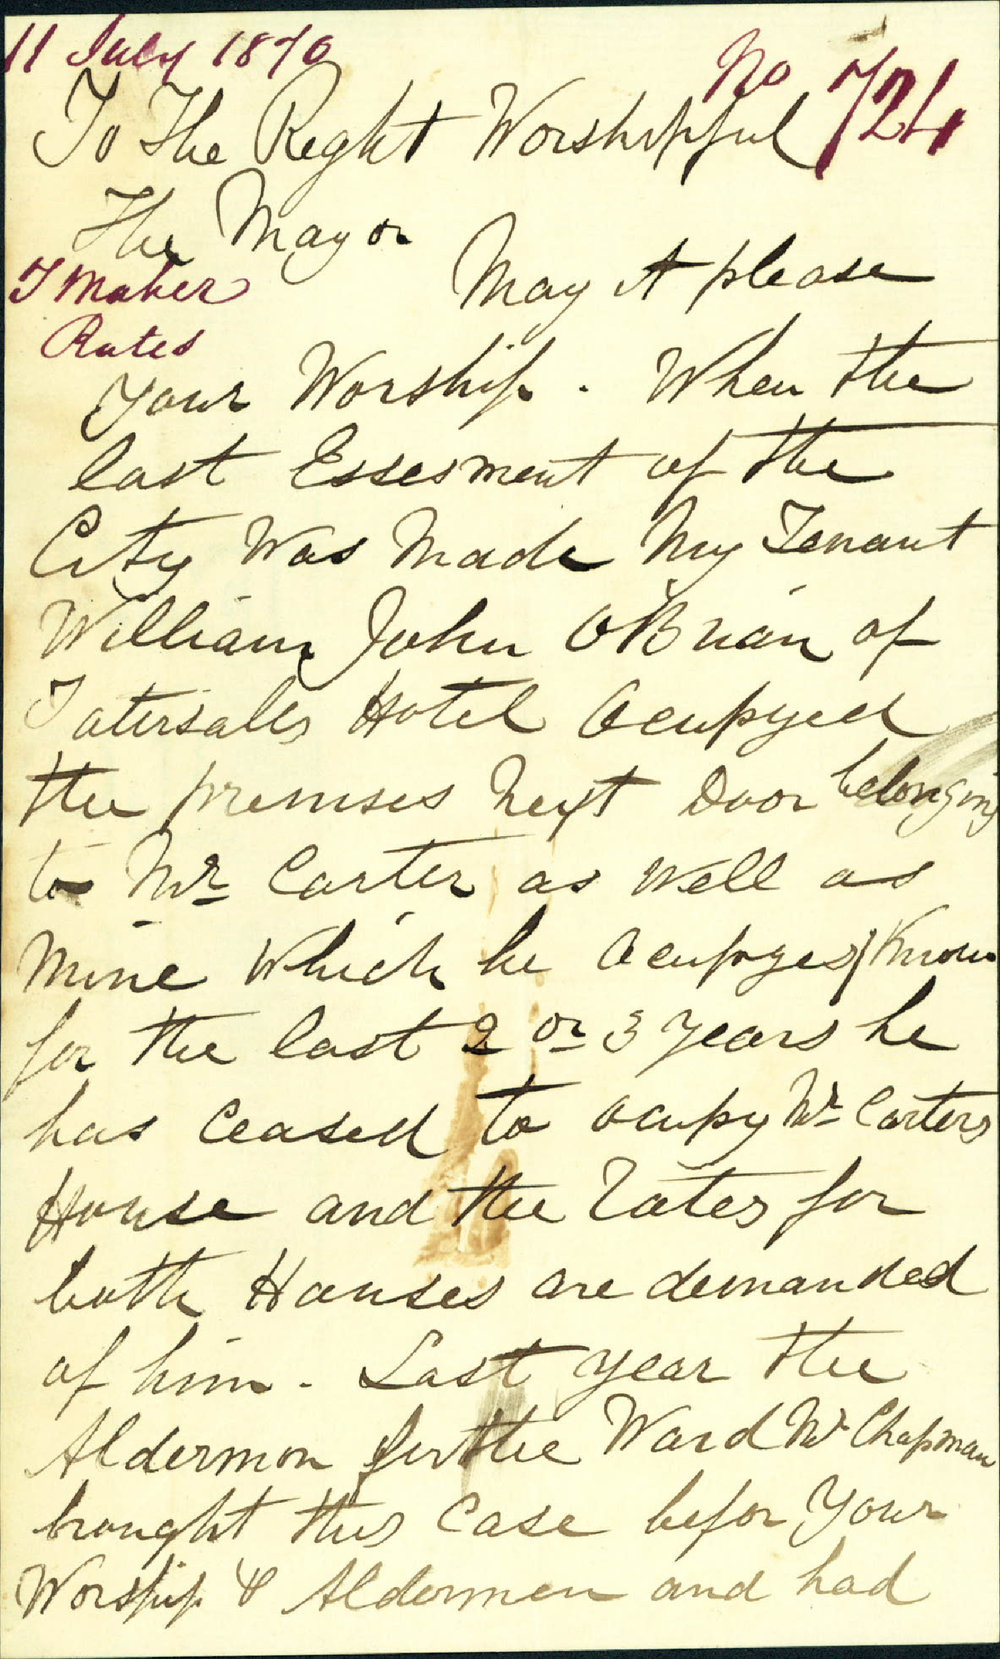 11 July 1870
No 724
To The Reght Worshipful
The Mayor
T Maher
Rates
May it please
Your Worship. When the
last Essesment of the
City Was Made My Tenant
William John O'Brian of
Tatersalls Hotel Ocupyed
the premises Next Door belonging
to Mr Carter as well as
Mine Which he Ocupyes
for the last 2 or 3 years he
has Ceased to ocupy Mr Carters
House and the rates for
both Houses are demanded
of him. Last year the
Aldermon for the Ward Mr Chapman
brought this Case befor Your
Worship & Aldermen and had